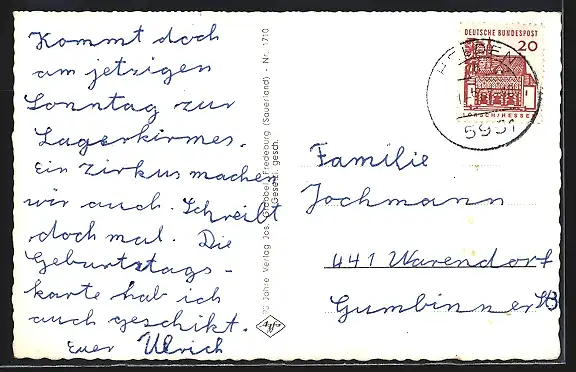 Kommt doch
am jetzigen
Sonntag zur
Lagerkirmes.
Ein Zirkus machen
wir auch. Schreibt
doch mal. Die
Geburtstags-
karte hab ich
auch geschikt.
Euer Ulrich
Jahre Verlag Jos. Grobbel, Fredeburg (Sauerland) - Nr. 1710
(Gesetzl. gesch.
Agfa
DEUTSCHE BUNDESPOST
20
LORSCH/HESSEN
HELDEN
5951
Familie
Jochmann
441 Warendorf
Gumbinner